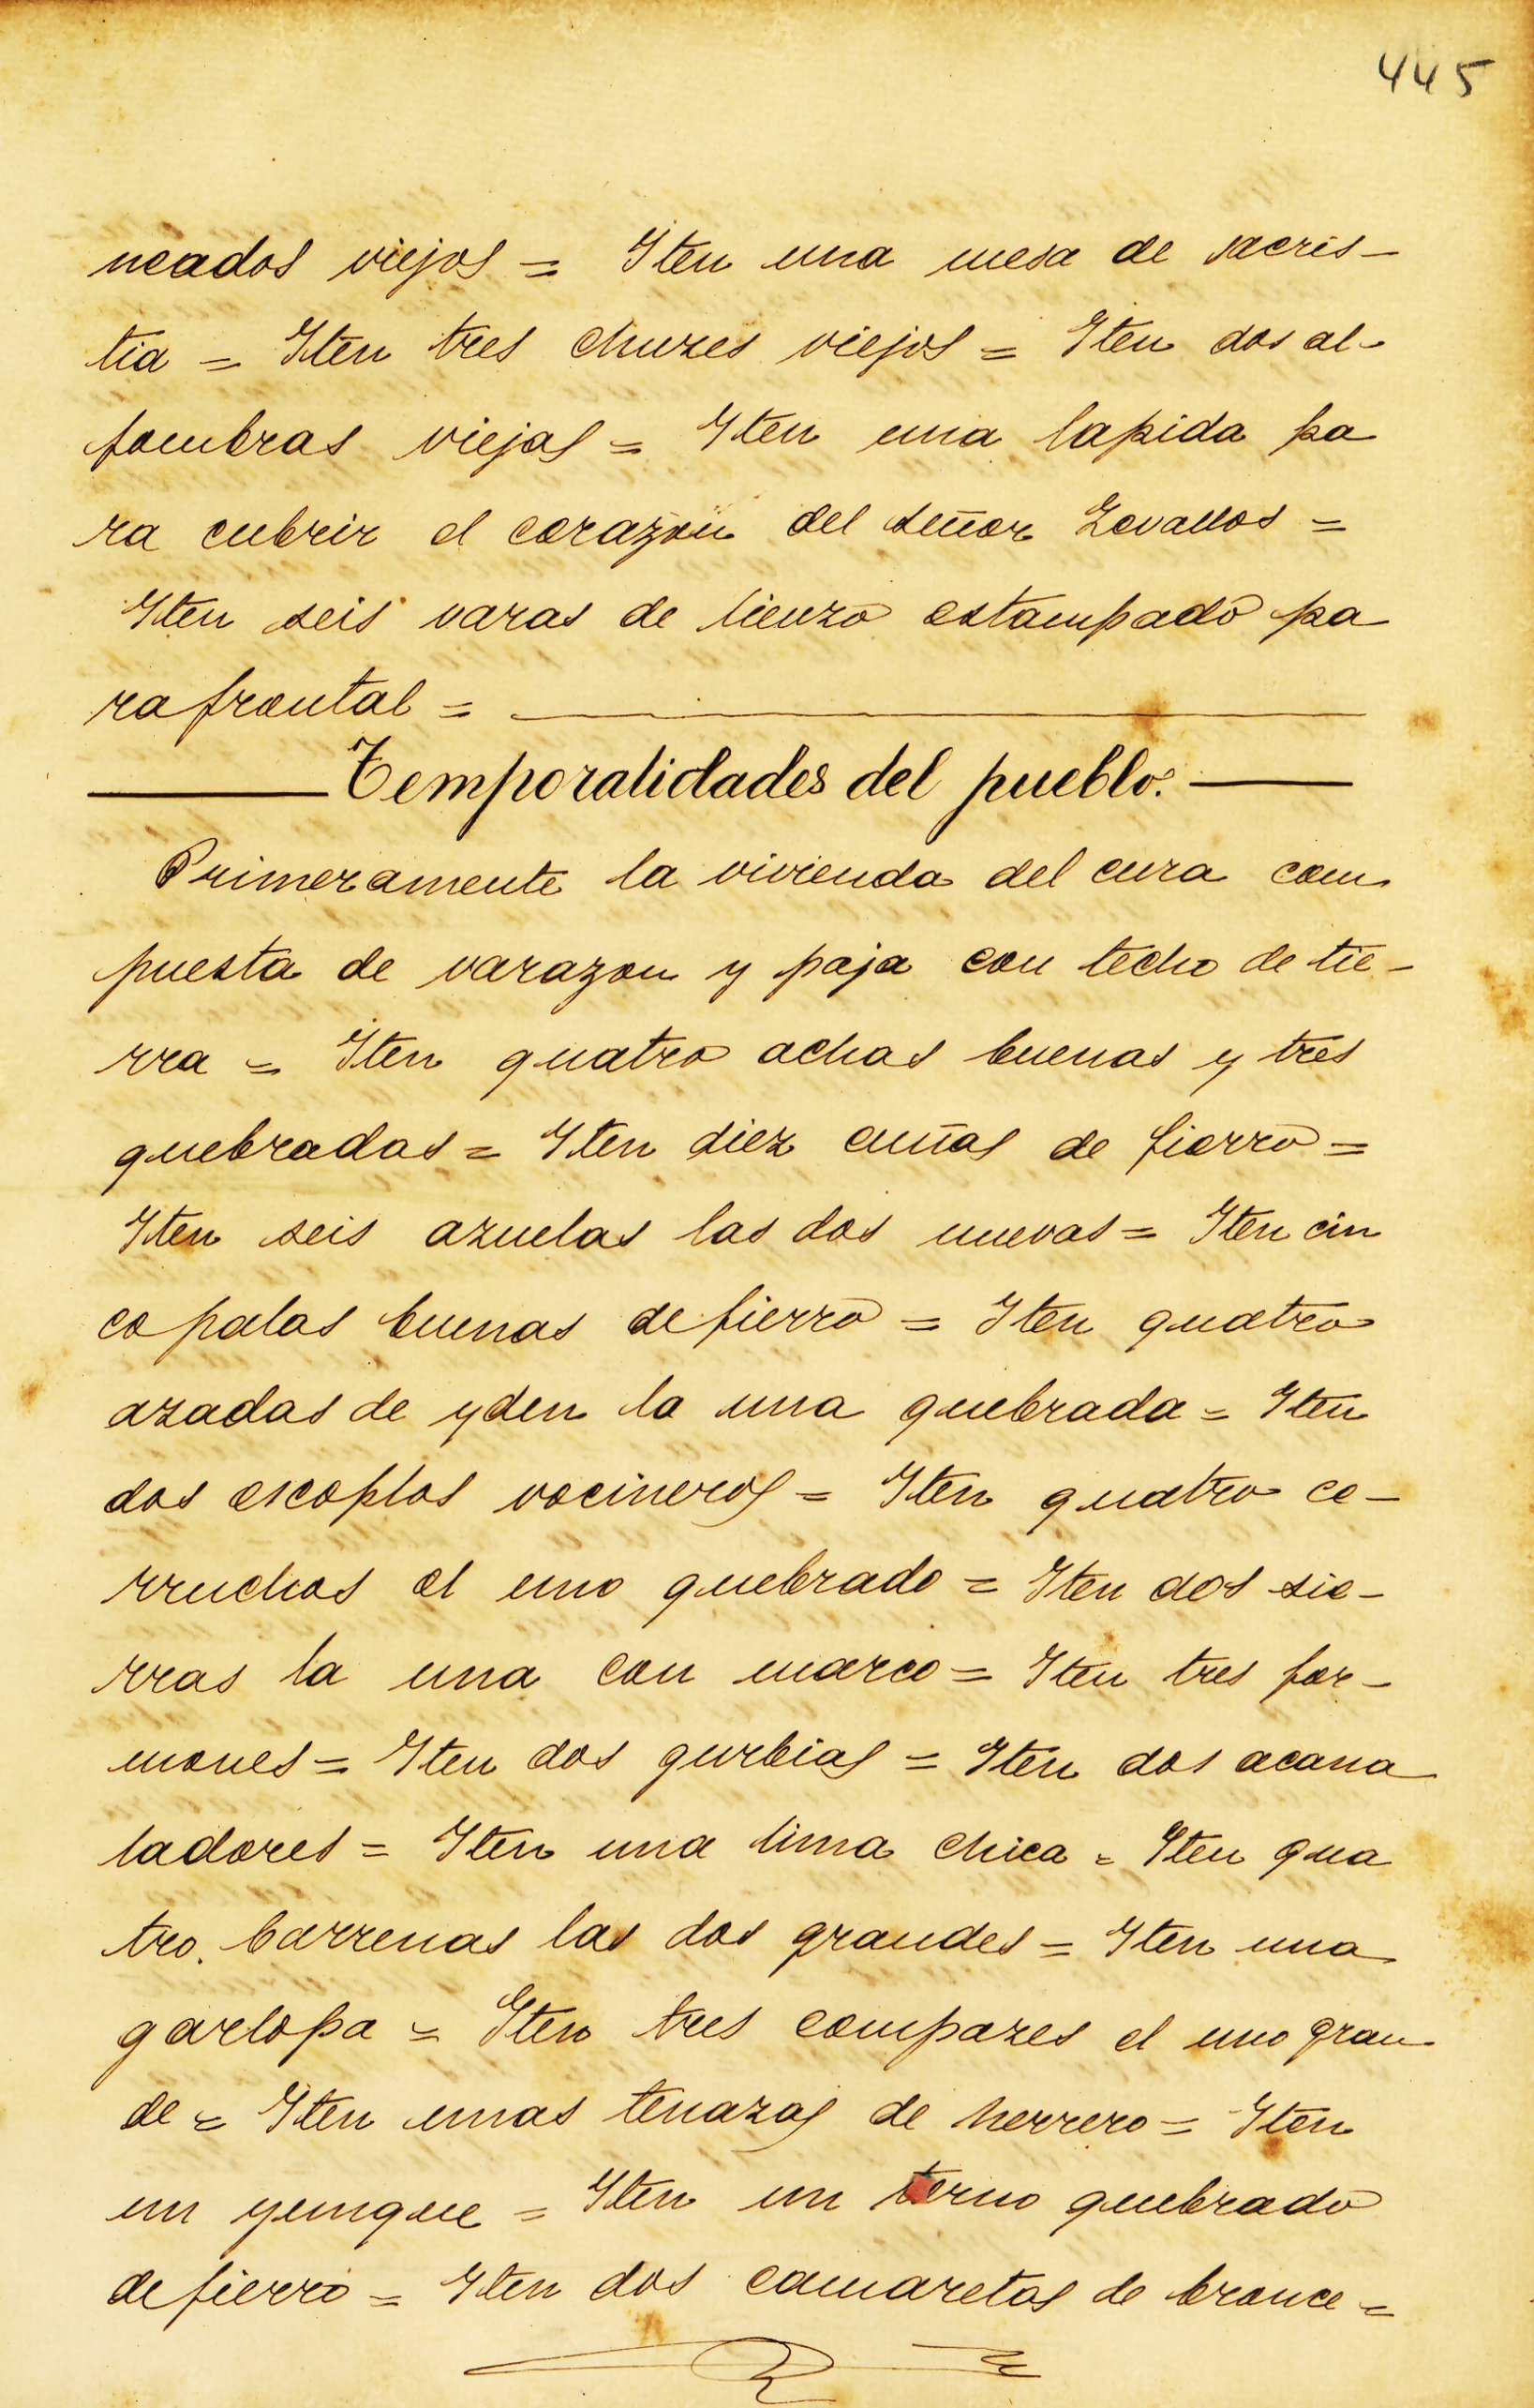 445
neados viejos = Yten una mesa de sacris-
tia = Yten tres chuzes viejos = Yten dos al-
fombras viejas = Yten una lapida pa
ra cubrir el corazon del señor Zevallos =
Yten seis varas de lienzo estampado pa
ra frontal =
Temporalidades del pueblo.
Primeramente la vivienda del cura com
puesta de varazon y paja con techo de tie-
rra = Yten quatro achas buenas y tres
quebradas = Yten diez cuñas de fierro =
Yten seis azuelas las dos nuevas = Yten cin
co palas buenas de fierro = Yten quatro
azadas de yden la una quebrada = Yten
dos escoplos vocineros = Yten quatro ce-
rruchos el uno quebrado = Yten dos sie-
rras la una con marco = Yten tres for-
mones = Yten dos gurbias = Yten dos acana
ladores = Yten una lima chica = Yten qua
tro. barrenas las dos grandes = Yten una
garlopa = Yten tres compazes el uno gran
de = Yten unas tenazas de herrero = Yten
un yunque = Yten un torno quebrado
de fierro = Yten dos camaretas de bronce =